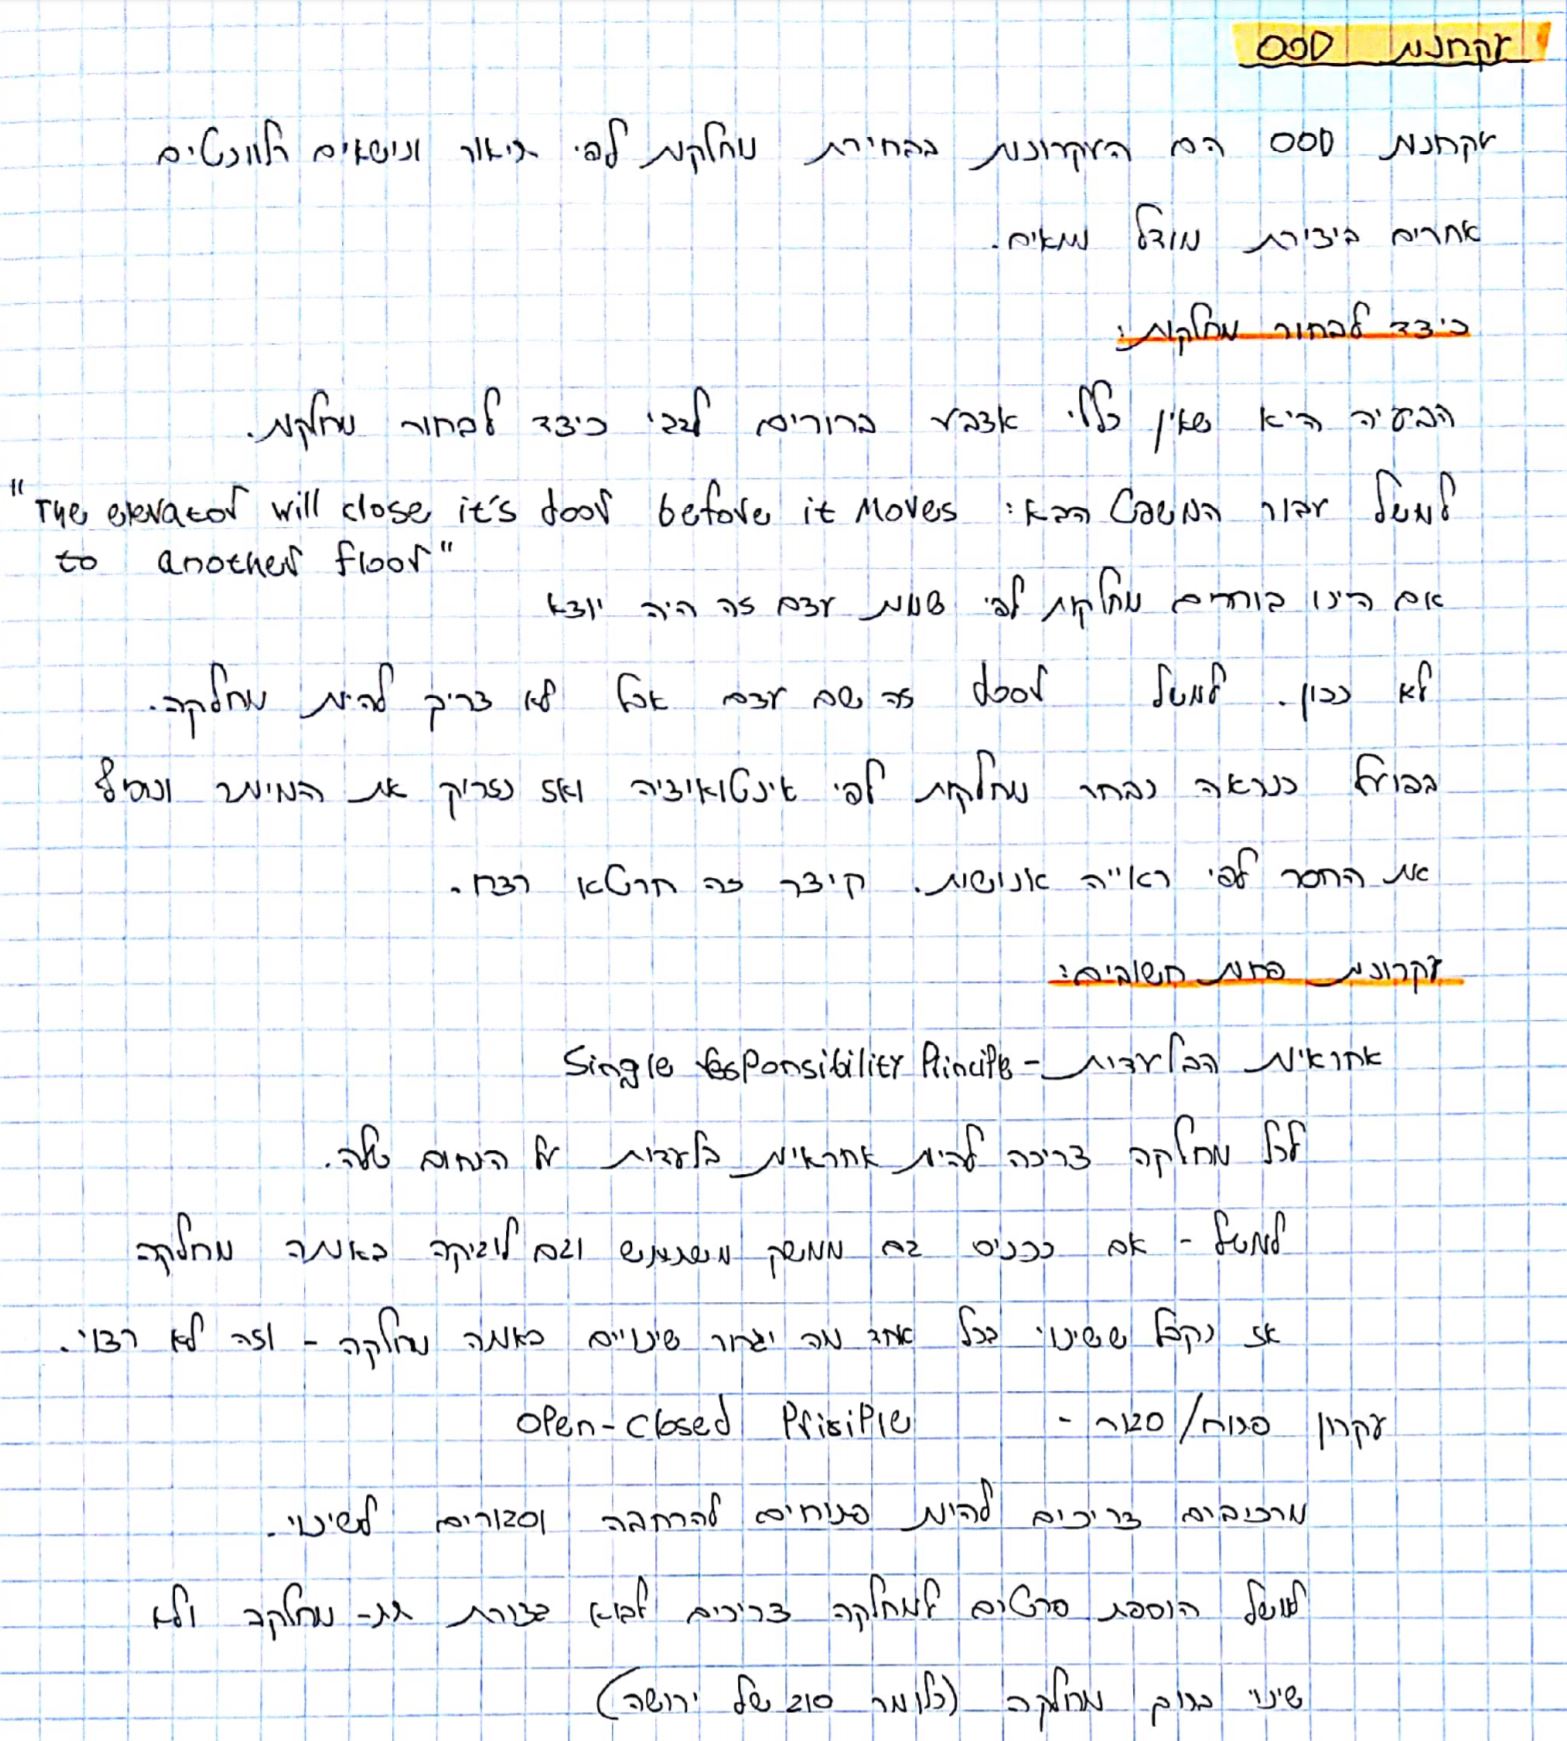 עקרונות OOD
עקרונות OOD הם העקרונות בבחירת מחלקות לפי תיאור ונישאים רלוונטים
אחרים ביצירת מודל מתאים.
כיצד לבחור מחלקות:
הבעיה היא שאין כללי אצבע ברורים לגבי כיצד לבחור מחלקות.
למשל עבור המשפט הבא: "The elevator will close it's door before it moves
to another floor"
אם היינו בוחרים מחלקות לפי שמות עצם זה היה יוצא
לא נכון. למשל door זה שם עצם אבל לא צריך להיות מחלקה.
בפועל כנראה נבחר מחלקות לפי אינטואיציה ואז נזרוק את המיותר ונוסיף
את החסר לפי ראייה אנושית. קיצר זה חרטא רצח.
עקרונות פחות חשובים:
אחראיות הבלעדית - Single responsibility Principle
לכל מחלקה צריכה להיות אחראית בלעדית על התחום שלה.
למשל - אם נכניס גם ממשק משתמש וגם לוגיקה באותה מחלקה
אז נקבל ששינוי בכל אחד מה יגרור שינויים באותה מחלקה - וזה לא רצוי.
עקרון פתוח/סגור - Open-Closed Prisiple
מרכיבים צריכים להיות פתוחים להרחבה וסגורים לשינוי.
למשל הוספת פרטים למחלקה צריכים לבוא בצורת תת-מחלקה ולא
שינוי בגוף מחלקה (כלומר סוג של ירושה)